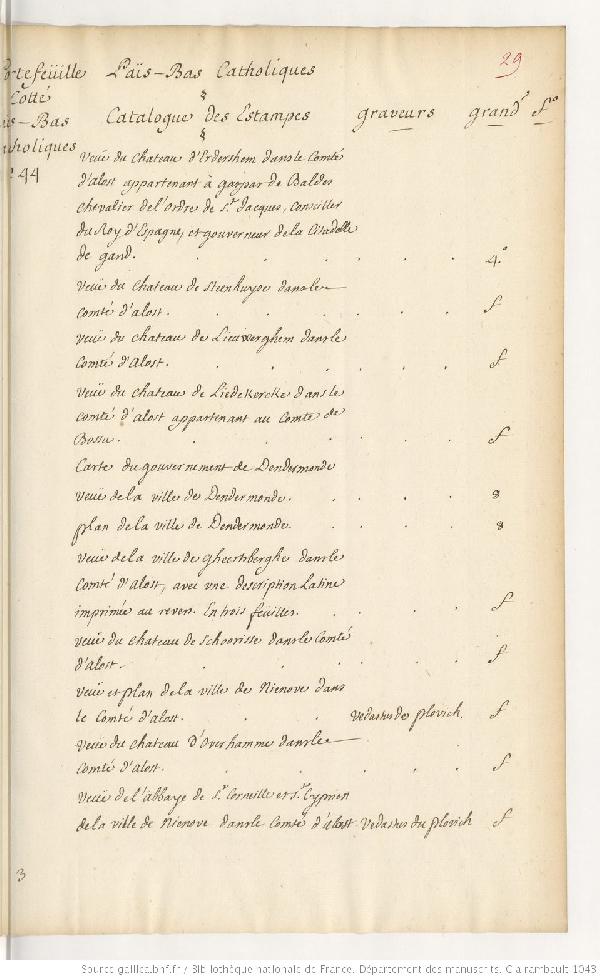 29
Portefeüille Païs-Bas Catholiques
Cotté
Païs-Bas Catalogue des Estampes graveurs grandr fo
Catholiques
no 44
Veüe du Chateau d'Erdershem dans le Comté
d'alost appartenant à gaspar de Baldes
Chevalier de l'ordre de St Jacques, Conseiller
du Roy d'Espagne, et gouverneur de la Citadelle
de gand. 4.o
Veüe du Chateau de Steenhuyse dans le
Comté d'alost. f
Veüe du chateau de Lieuverghem dans le
Comté d'Alost. f
Veüe du chateau de Liedekercke dans le
Comté d'alost appartenant au Comte de
Bossu. f
Carte du gouvernement de Dendermonde
Veüe de la ville de Dendermonde. 8
plan de la ville de Dendermonde. 8
Veüe de la ville de gheertsberghe dans le
Comté d'Alost, avec vne description Latine
imprimée au revers. En trois feüilles. f
Veüe du chateau de Schoorisse dans le Comté
d'Alost. f
Veüe et plan de la ville de Nienove dans
le Comté d'alost. Vedastus de plovich. f
Veüe du chateau d'Overhamme dans le
Comté d'alost. f
Veüe de l'abbaye de St Corneille et St Cyprien
de la ville de Nienove dans le Comté d'alost Vedastus du plovich f
3
Source gallica.bnf.fr / Bibliothèque nationale de France. Département des manuscrits. Clairambault 1043